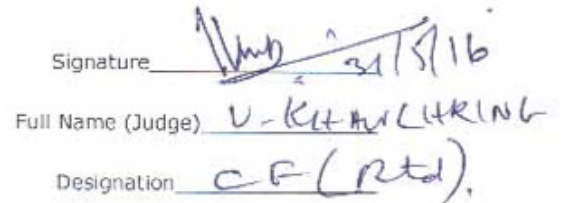 Signature 31/5/16
Full Name (Judge) V-KHAWLHRING
Designation CF (Rtd).